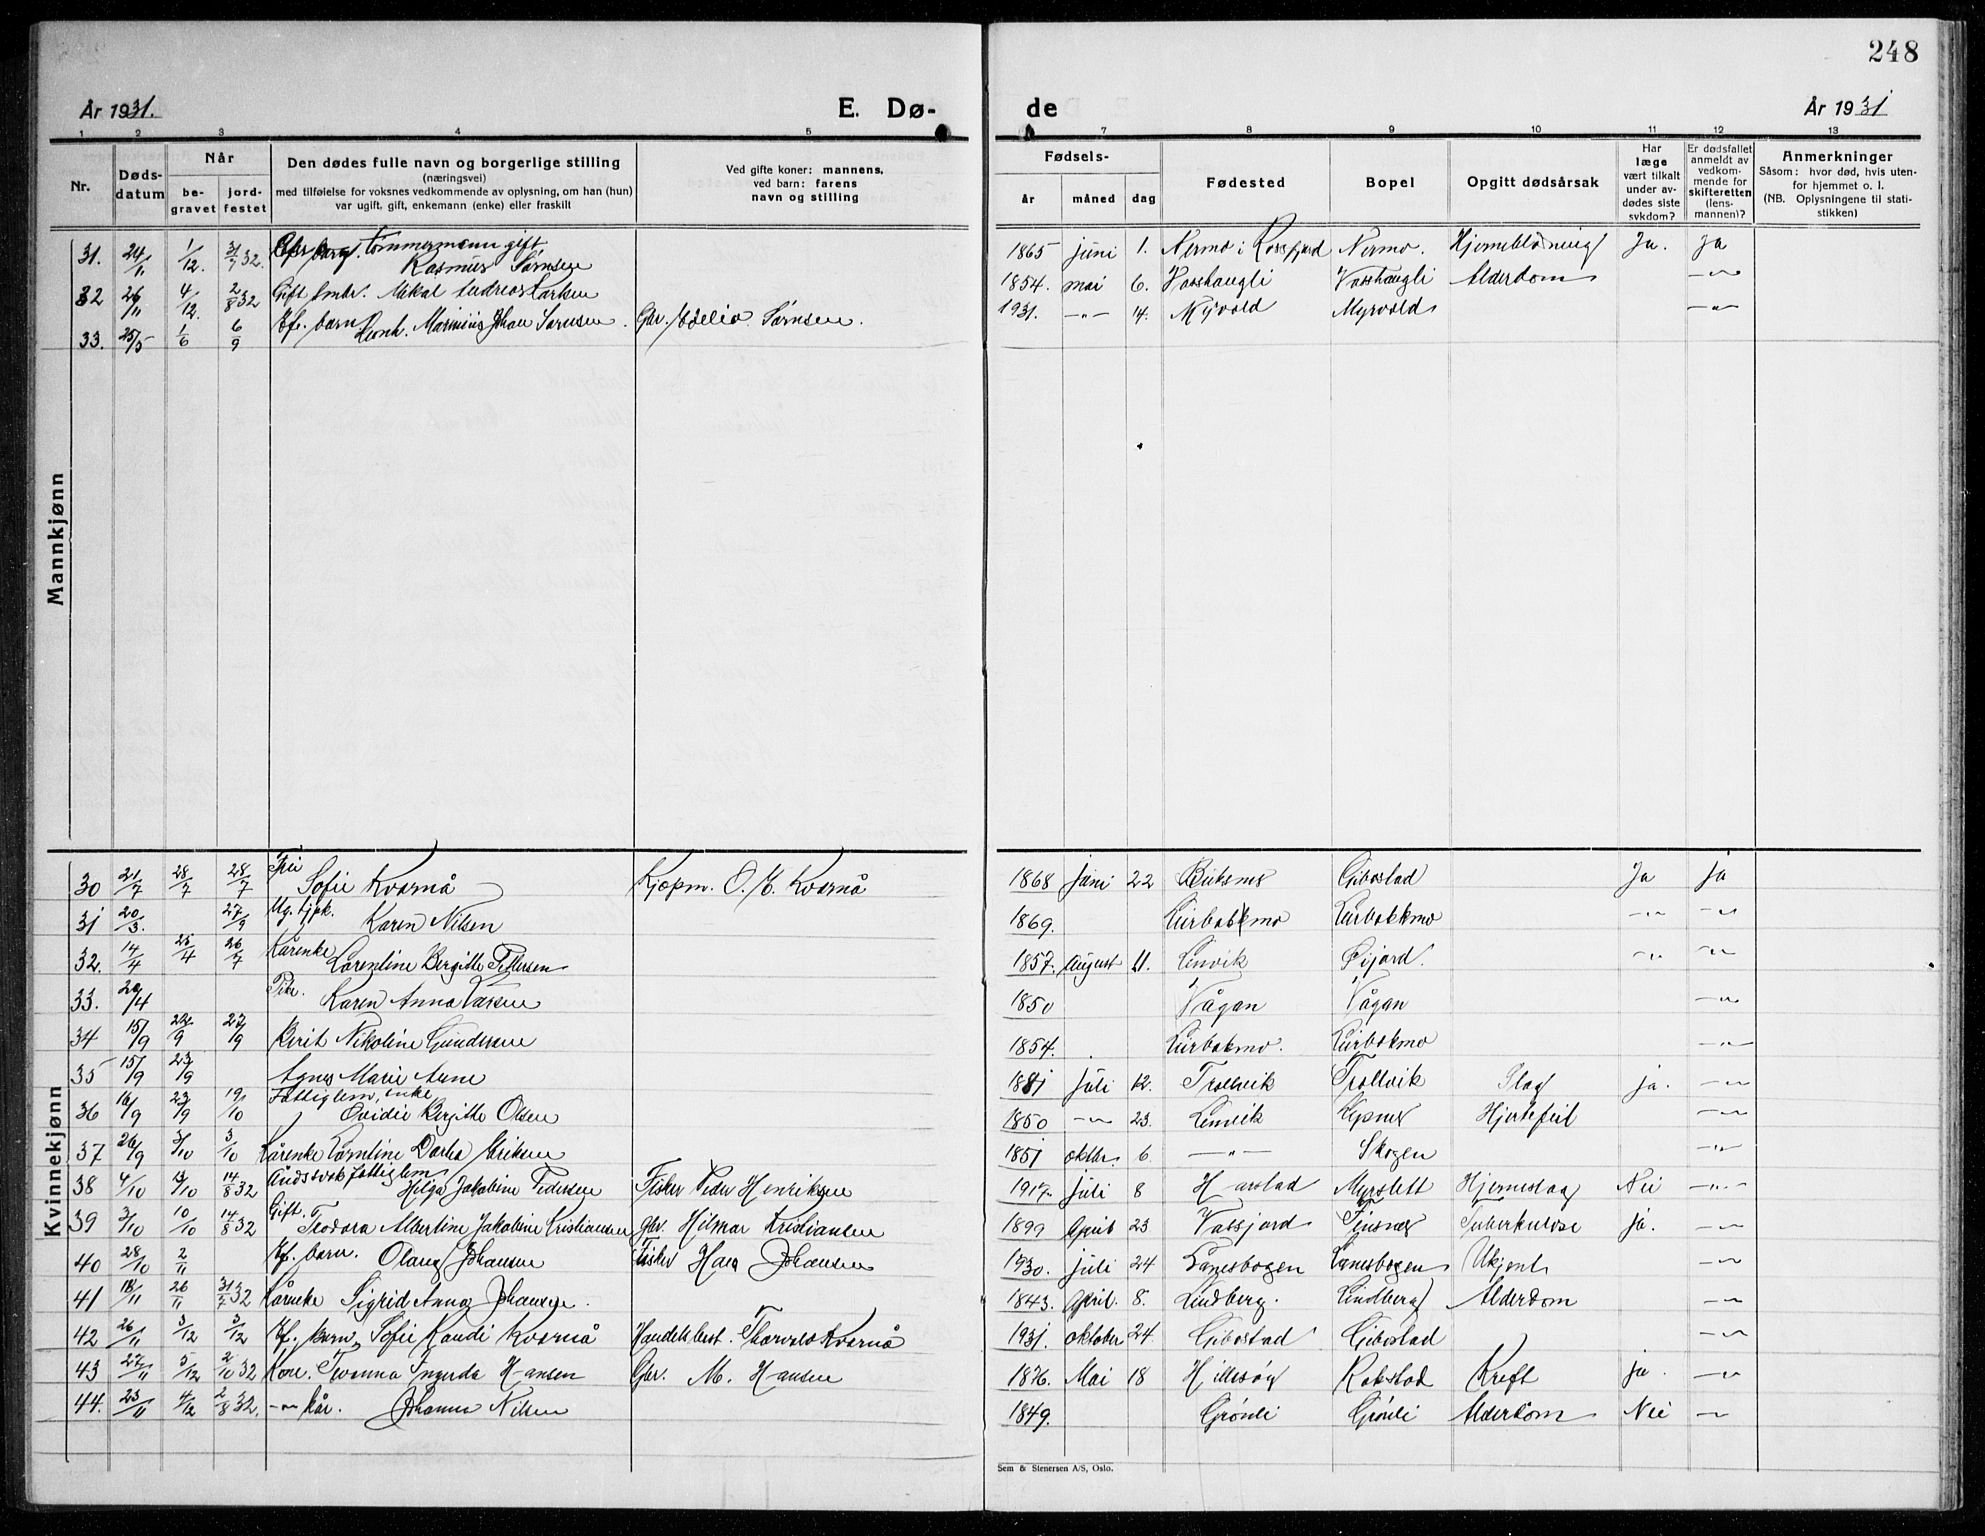 248
År 1931.
E. Dø-
de
År 1931
1 2 3 4 5 7 8 9 10 11 12 13
Nr.
Døds-
datum
Når
be-
gravet
jord-
festet
Den dødes fulle navn og borgerlige stilling
(næringsvei)
med tilføielse for voksnes vedkommende av oplysning, om han (hun)
var ugift, gift, enkemann (enke) eller fraskilt
Ved gifte koner: mannens,
ved barn: farens
navn og stilling
Fødsels-
år måned dag
Fødested
Bopel
Opgitt dødsårsak
Har
læge
vært tilkalt
under av-
dødes siste
sykdom?
Er dødsfallet
anmeldt av
vedkom-
mende for
skifteretten
(lens-
mannen)?
Anmerkninger
Såsom: hvor død, hvis uten-
for hjemmet o. l.
(NB. Oplysningene til stati-
stikken)
Mannkjønn
31. 24/11 1/12. 31/7 32. tømmermann gift Rasmus Sørnsen 1865 juni 1. Nermo i Rossfjord Nermo. Hjerneblødning Ja. Ja
32 26/11 4/12. 2/8 32 Gift Mikal Andreas Larsen 1854. mai 6. Vasshaugli Vasshaugli Alderdom -"-
33. 25/5 1/6 6/9 Ef. barn Leonh. Marinius Johan Sørnsen. Gbr. Edelio Sørnsen. 1931. -"- 14. Myrvold Myrvold -"-
Kvinnekjønn
30 21/7 28/7 28/7 Frei Sofie Kvarnå Kjøpm. O. E. Kvarnå 1868 juni 22 Buksnes Gibostad Ja Ja
31 20/3. 27/9 Ug. tjpk. Karen Nilsen 1869. Lurbakkmo Lurbakkmo -"- -"-
32. 14/4 25/4 26/7 Kårenke Lorentine Bergitte Pettersen 1857. August 11. Lenvik Øijord. -"- -"-
33. 20/4 Karen Anna Larsen 1850 Vågan Vågan -"-
34 15/9 22/9 27/9 Berit Nikoline Gundersen 1854. Lurbakmo. Lurbakmo -"-
35 15/9 23/9 Agnes Marie Aune 1881 juli 12. Trollvik Trollvik Slag ja. -"-
36 16/9 23/9 19/10 Fattiglem, enke Ovidie Bergitte Olsen 1850 -"- 23. Lenvik Hjertefeil -"-
37 26/9 3/10 3/10 Kårenke Dorthea Eriksen 1851 oktbr. 6. -"- Skogen -"-
38 4/10 13/10 14/8 32 Åndssvak fattiglem Helga Jakobine Pedersen Fisker Peder Henriksen 1917. juli 8 Harstad Myrslett Hjerneslag Nei -"-
39 3/10 10/10 14/8 32 Gift. Teodora Albertine Jakobine Kristiansen gbr. Hilmar Kristiansen 1899 April 23 Vassjord Finsnes Tuberkulose ja. -"-
40 28/10 2/11 Ef. barn. Olaug Johansen Fisker Hans Johansen 1930. juli 24 Lanesbogen Lanesbogen Ukjent -"-
41 18/11 26/11 31/7 32 Kårenke Sigrid Anna Johansen. 1843. April. 8. Lindberg. Lindberg Alderdom -"-
42 26/11 3/12 3/12 Ef. barn, Sofie Randi Kvarnå Handelsbest. Thorvald Kvarnå 1931. oktober 24. Gibostad Gibostad -"-
43 27/11 5/12 2/10 32 Kone. Ingerda Hansen Gbr. M. Hansen 1876. Mai 18 Hillesøy Rakstad Kreft ja. -"-
44. 23/11 4/12 2/8 32. -"- kår. Johanna Nilsen 1849. Grønli Grønli Alderdom Nei -"-
Sem & Stenersen A/S, Oslo.